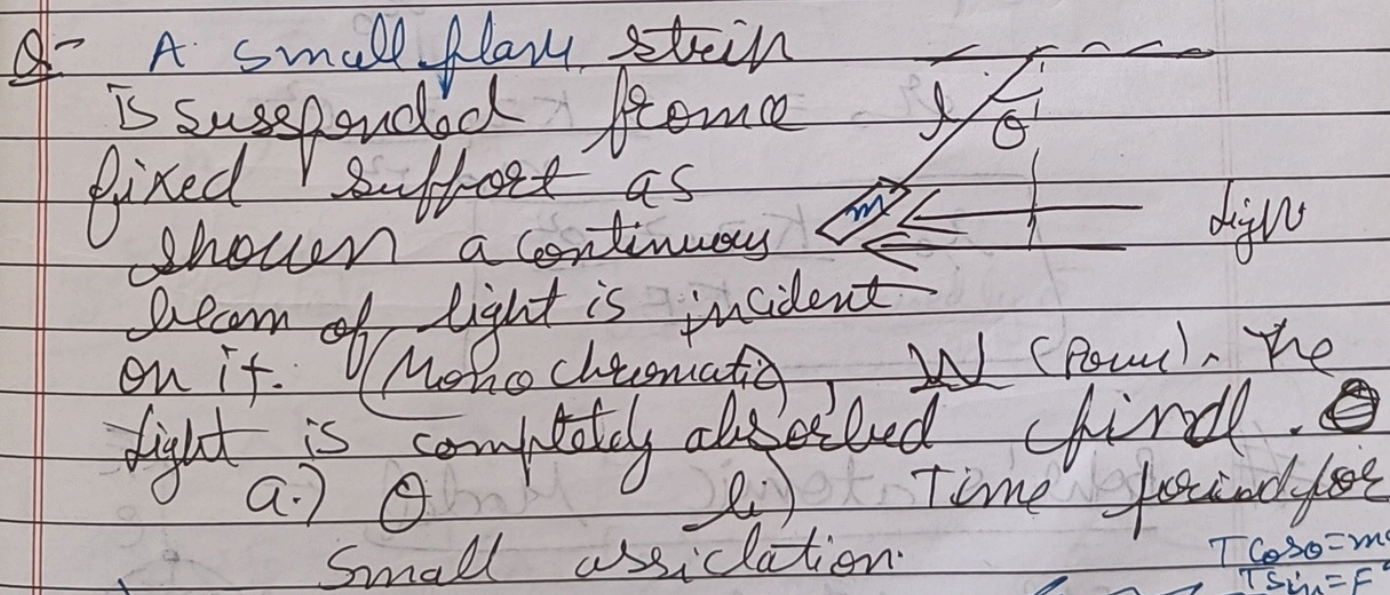 Q- A small flany strip
is suseponded from a
fixed support as
shown a continuous
beam of light is incident
on it. (Monochromatic), W (Power). The
light is completely absorbed find. θ
a.) θ b.) Time period for
small assiclation.
l
θ
m
light
Tcosθ=mg
Tsin=F